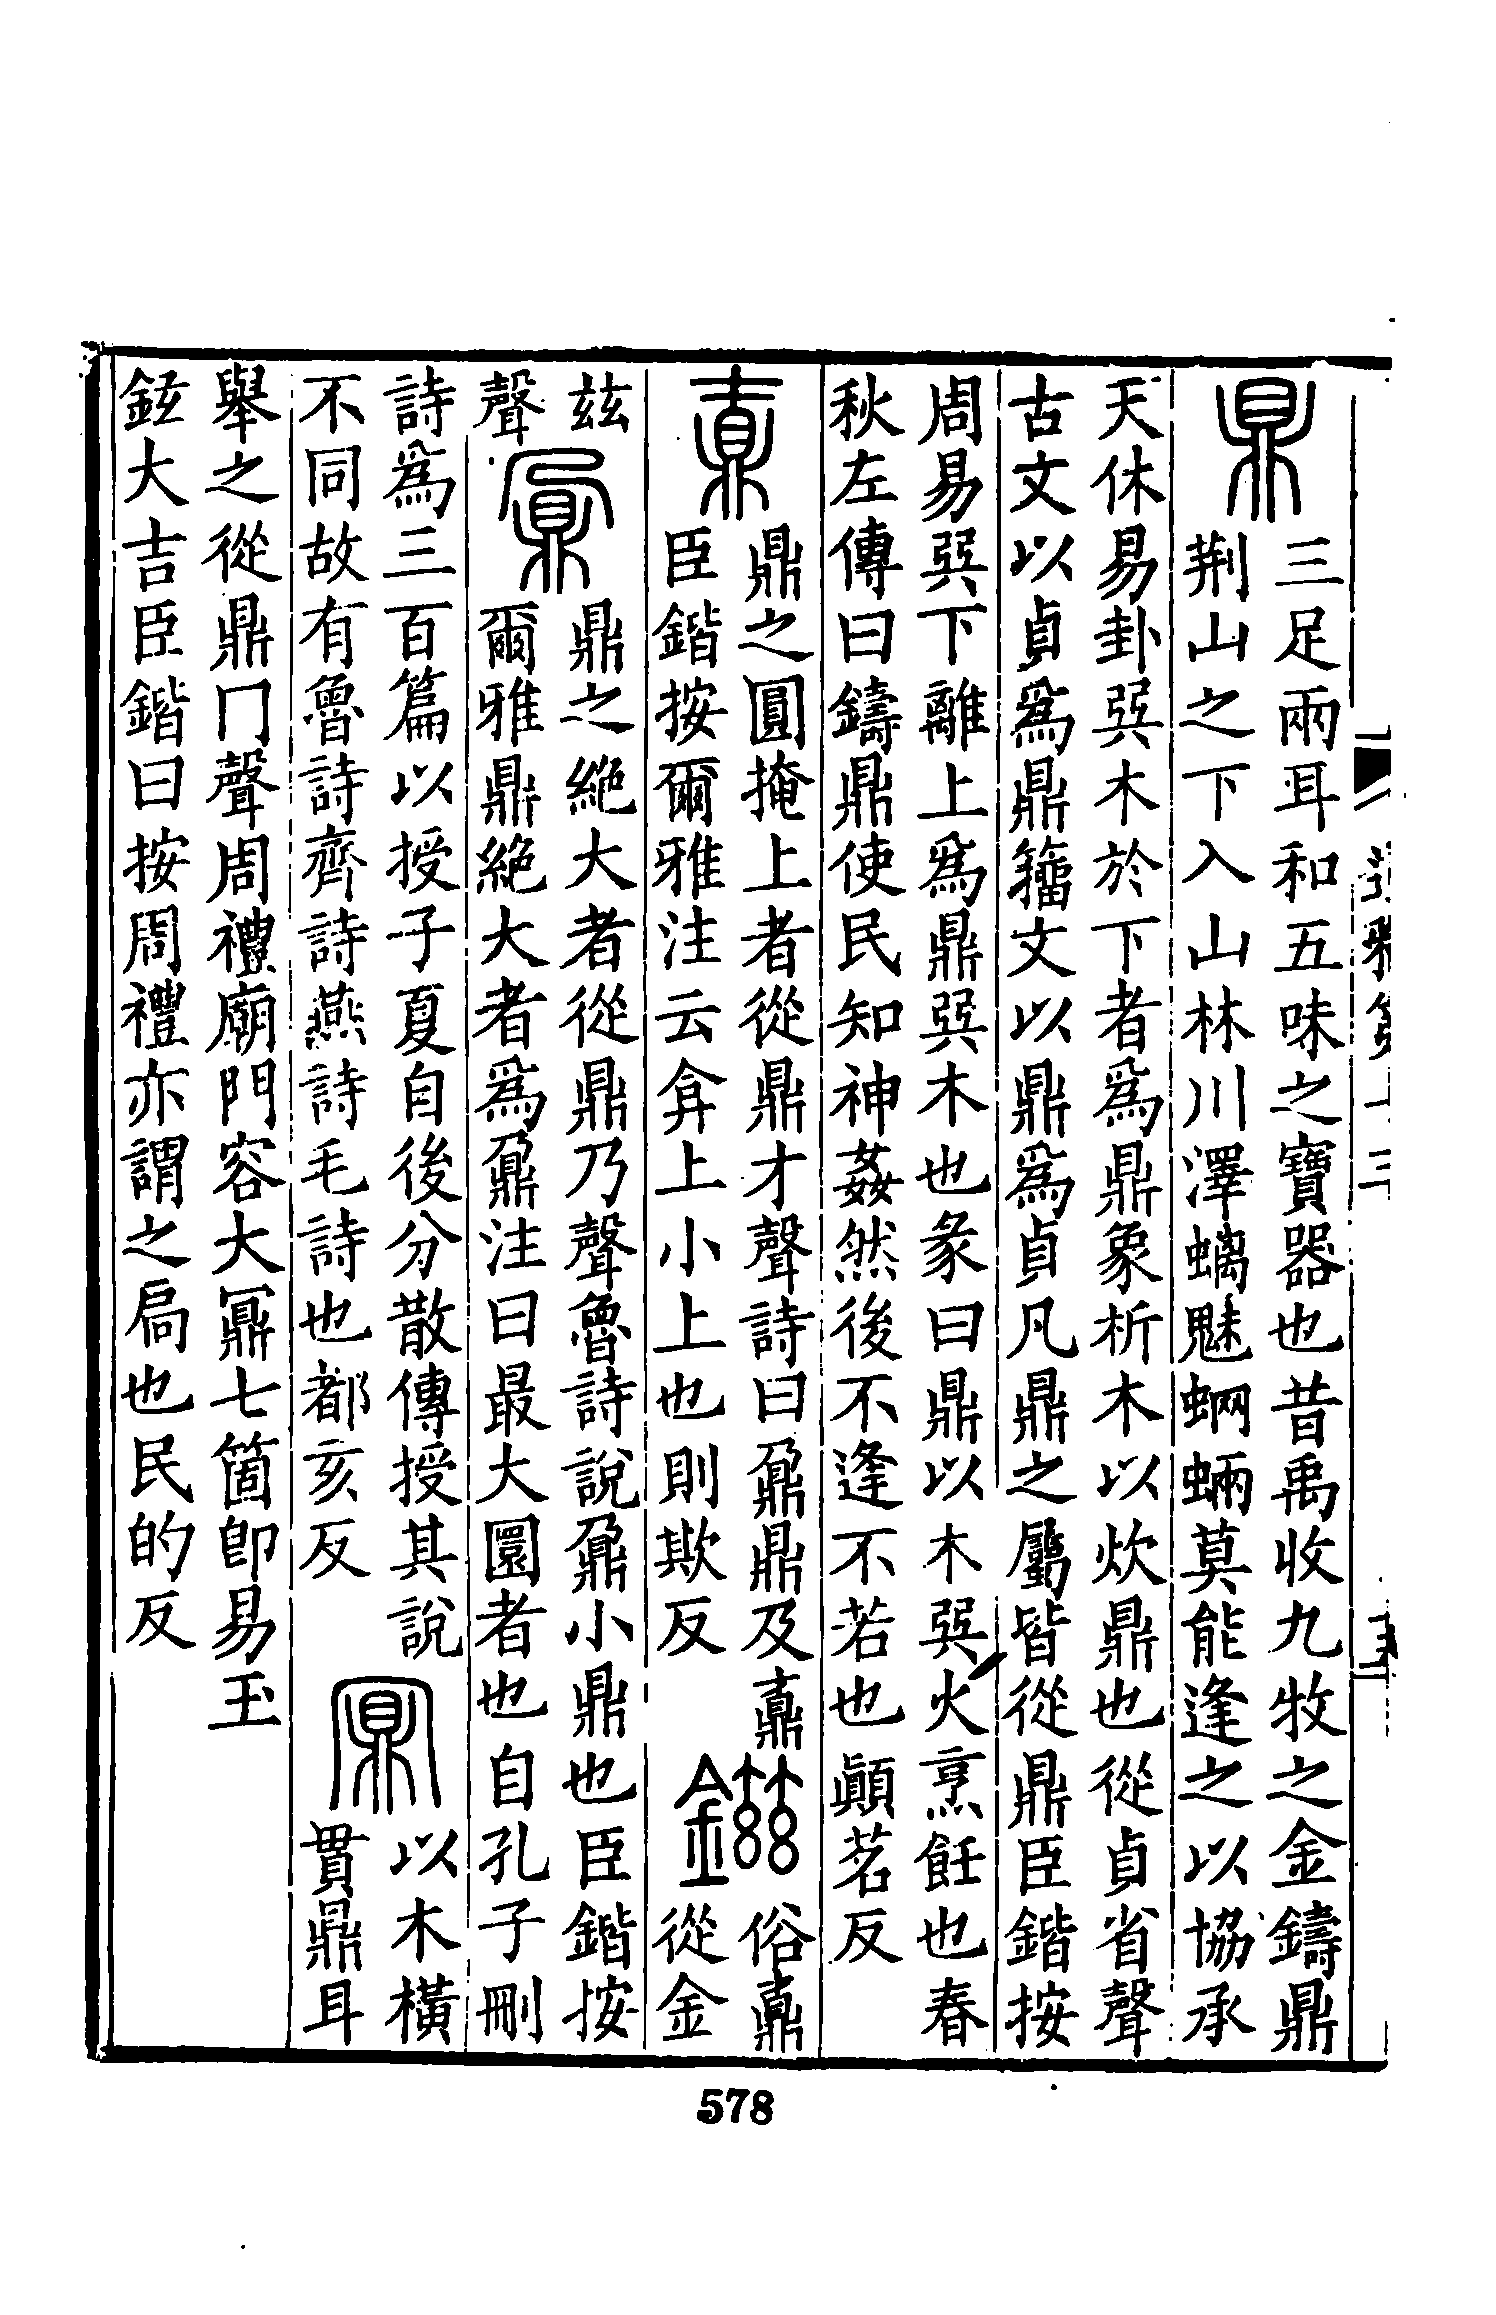 鼎三足兩耳和五味之寶器也昔禹收九牧之金鑄鼎
荆山之下入山林川澤螭魅蛧蜽莫能逢之以協承
天休易卦巽木於下者爲鼎象析木以炊鼎也從貞省聲
古文以貞爲鼎籒文以鼎爲貞凡鼎之屬皆從鼎臣鍇按
周易巽下離上爲鼎巽木也彖曰鼎以木巽火烹飪也春
秋左傳曰鑄鼎使民知神姦然後不逢不若也顚茗反
鼒鼎之圓掩上者從鼎才聲詩曰鼐鼎及鼒
臣鍇按爾雅注云弇上小上也則欺反
鎡俗鼒
從金
兹
聲
鼐鼎之絶大者從鼎乃聲魯詩說鼐小鼎也臣鍇按
爾雅鼎絶大者爲鼐注曰最大圜者也自孔子刪
詩爲三百篇以授子夏自後分散傳授其說
不同故有魯詩齊詩燕詩毛詩也都亥反
鼏以木橫
貫鼎耳
舉之從鼎冂聲周禮廟門容大鼏七箇卽易玉
鉉大吉臣鍇曰按周禮亦謂之扃也民的反
578